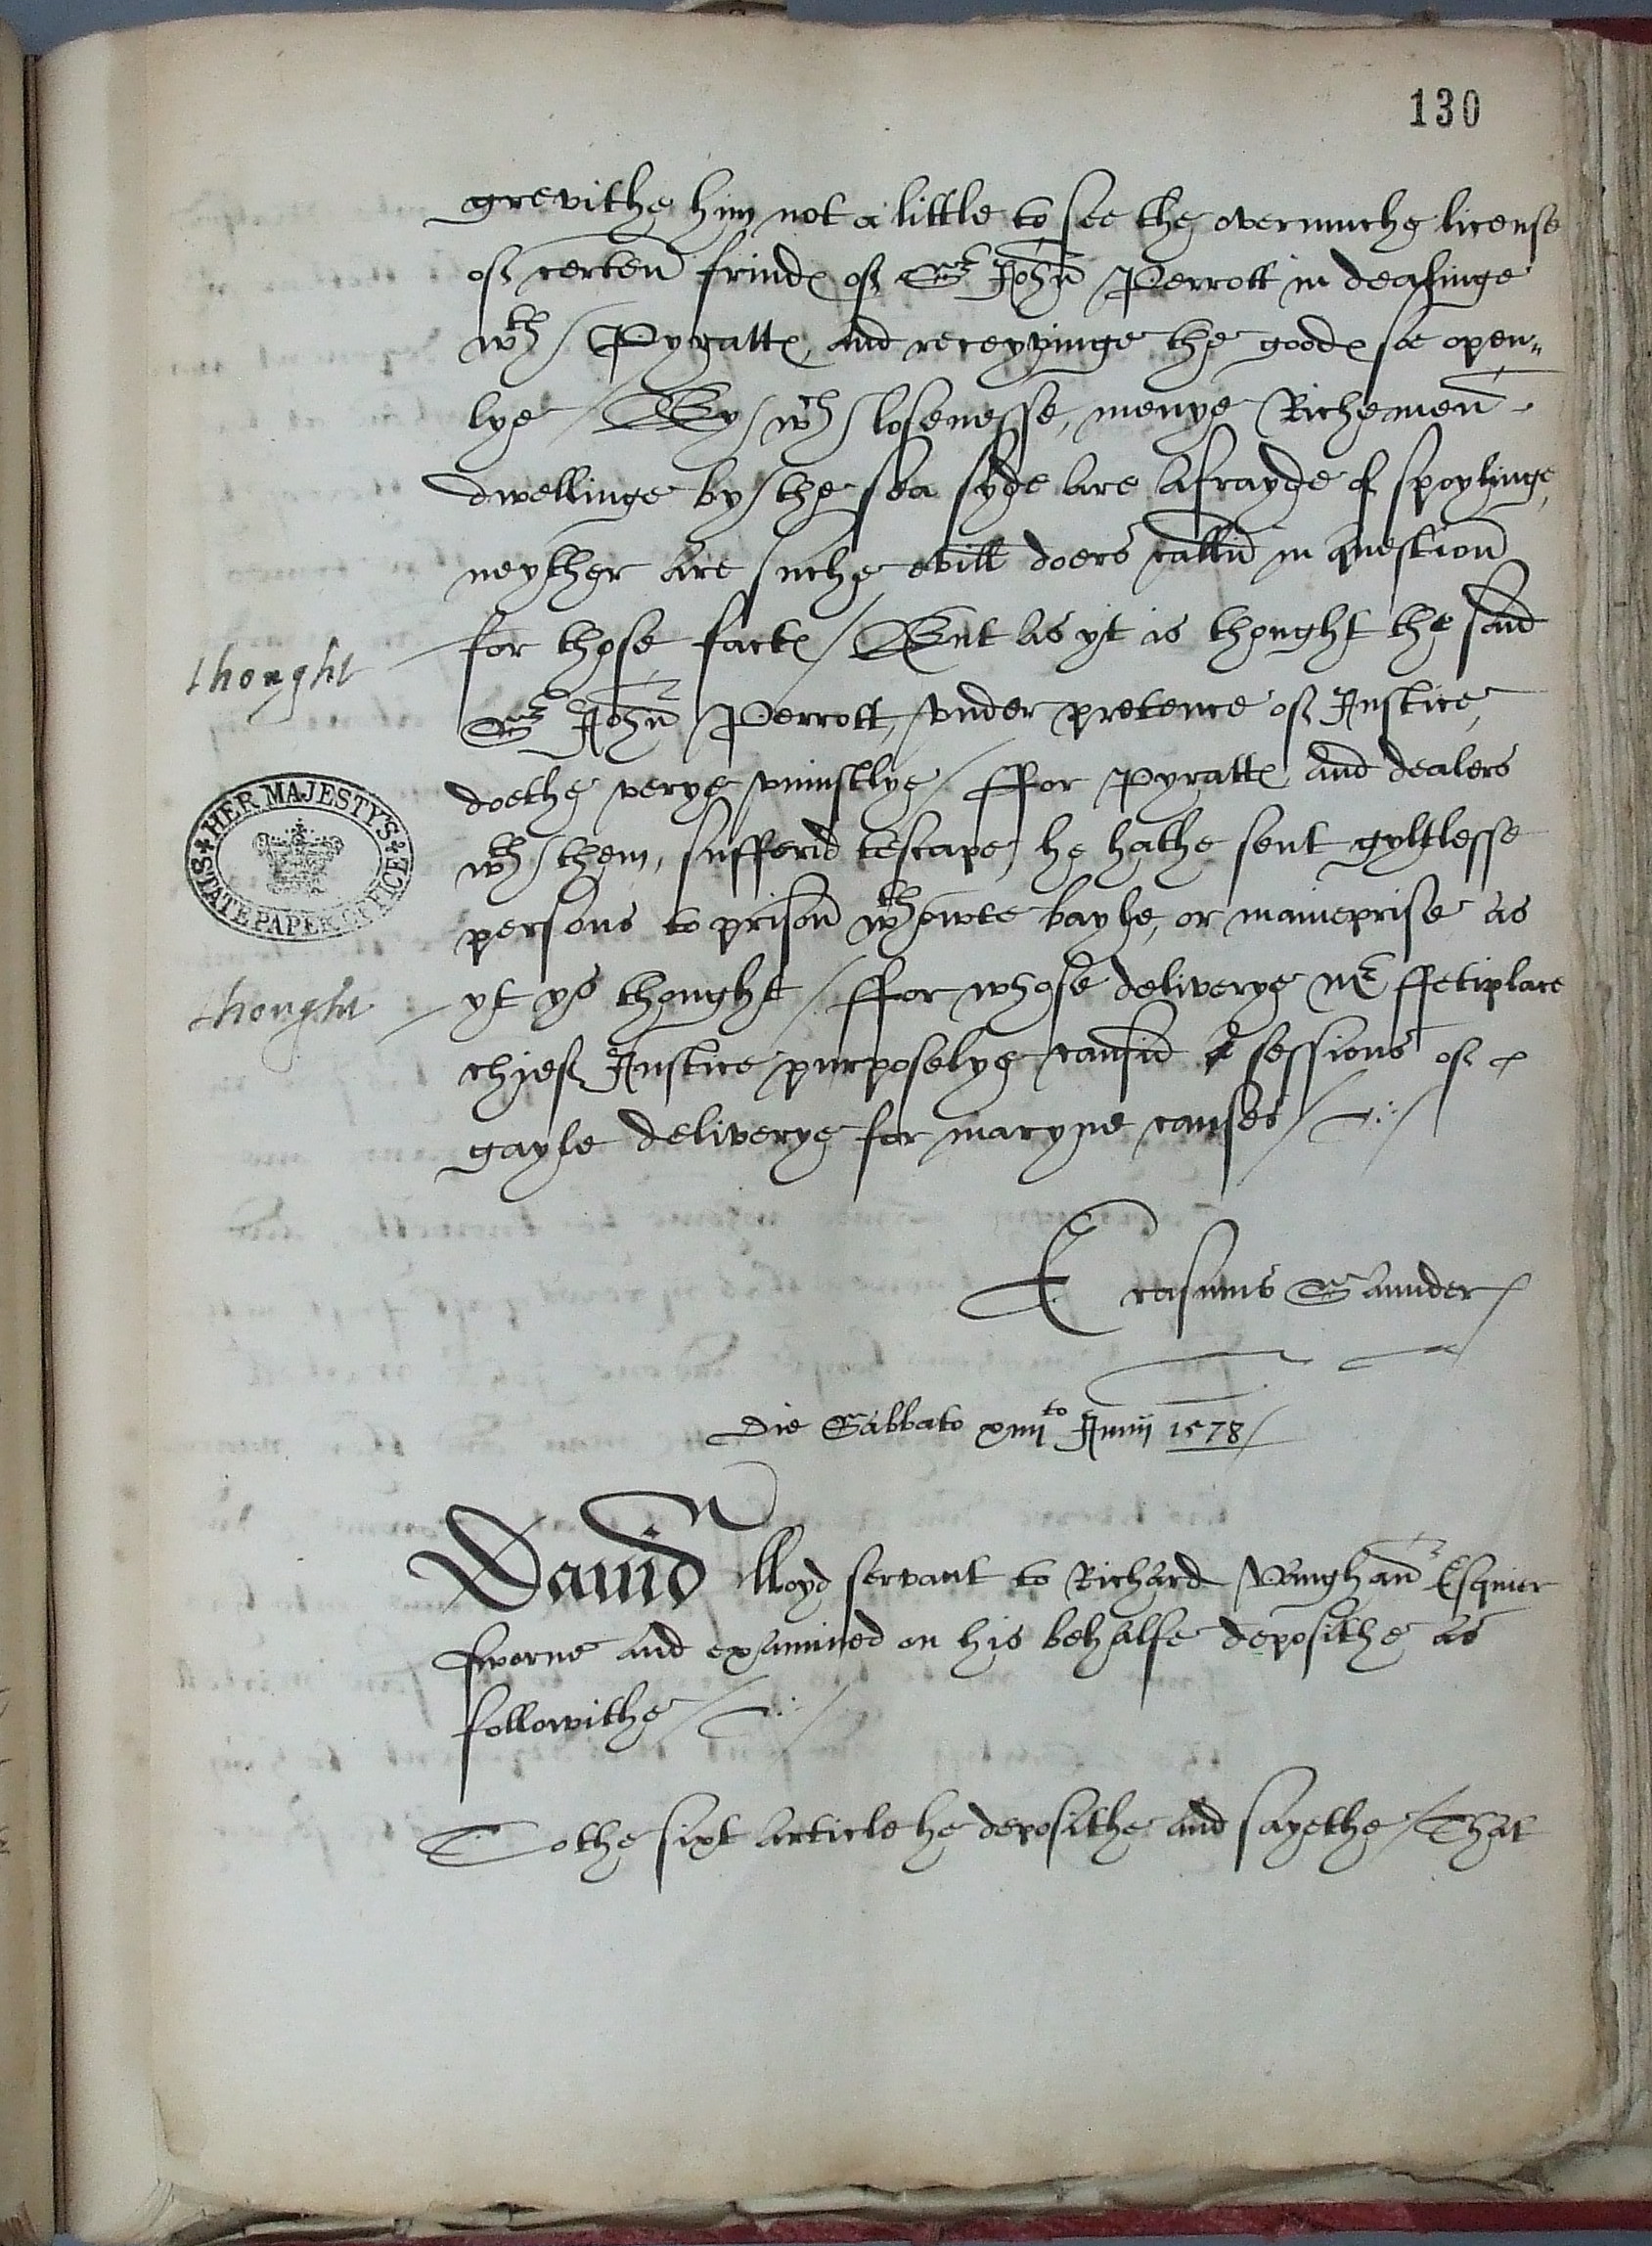 130
grevithe him not a little to see the overmuche license
of certen frindes of Sr John Perrott in dealinge
wth Pyrattes, and receyvinge the goodes soe open„
lye / By wch losenesse, menye Riche men
dwellinge by the sea syde are afrayde of spoylinge,
neyther are suche evill doers callid in question
for those factes / But as yt is thought the said
thought
Sr John Perrott, vnder pretence of Justice,
doethe verye vniustlye / ffor Pyrattes and dealers
HER MAJESTY'S STATE PAPER OFFICE
wth them, sufferid tescape, he hathe sent gyltlesse
persons to prison wthowte bayle, or maineprise as
yt ys thought / ffor whose deliverye Mr ffetiplace
thought
chief Justice purposelye causid a sessions of
gayle deliverye for maryne causes /
Erasmus Saunders
Die Sabbato xiiijto Junij 1578 /
David lloyd servant to Richard Vaughan Esquier
sworne and examined on his behalfe deposithe as
followithe /
To the sixt article he deposithe and sayethe / That